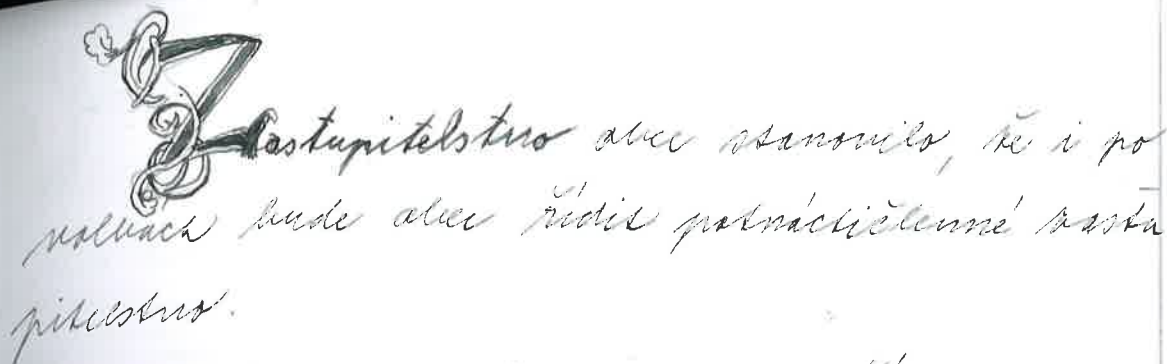 Zastupitelstvo obce stanovilo, že i po
volbách bude obec řídit patnáctičlenné zastu
pitelstvo.